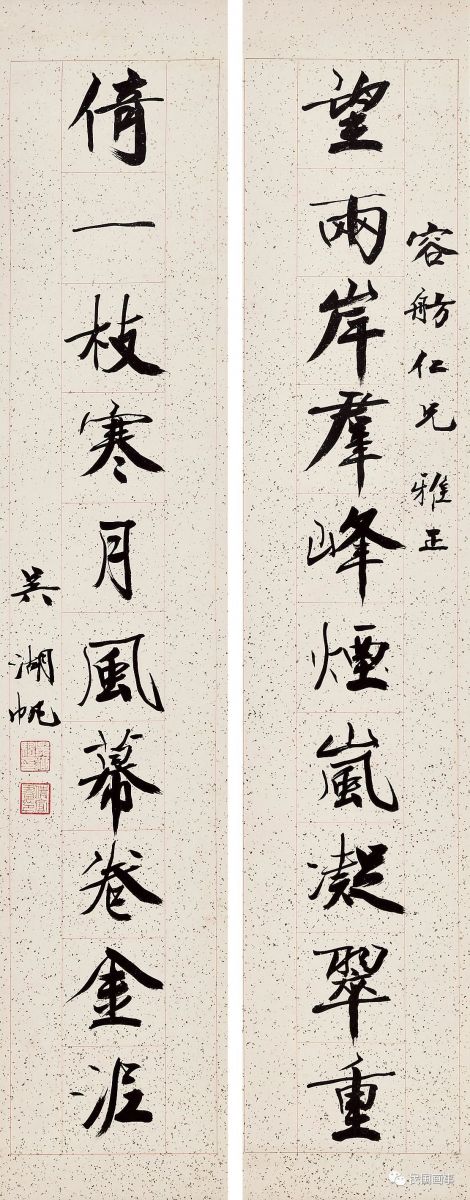 容舫仁兄雅正
望兩岸羣峰煙嵐凝翠重
倚一枝寒月風幕卷金泥
吳湖帆
民国画事